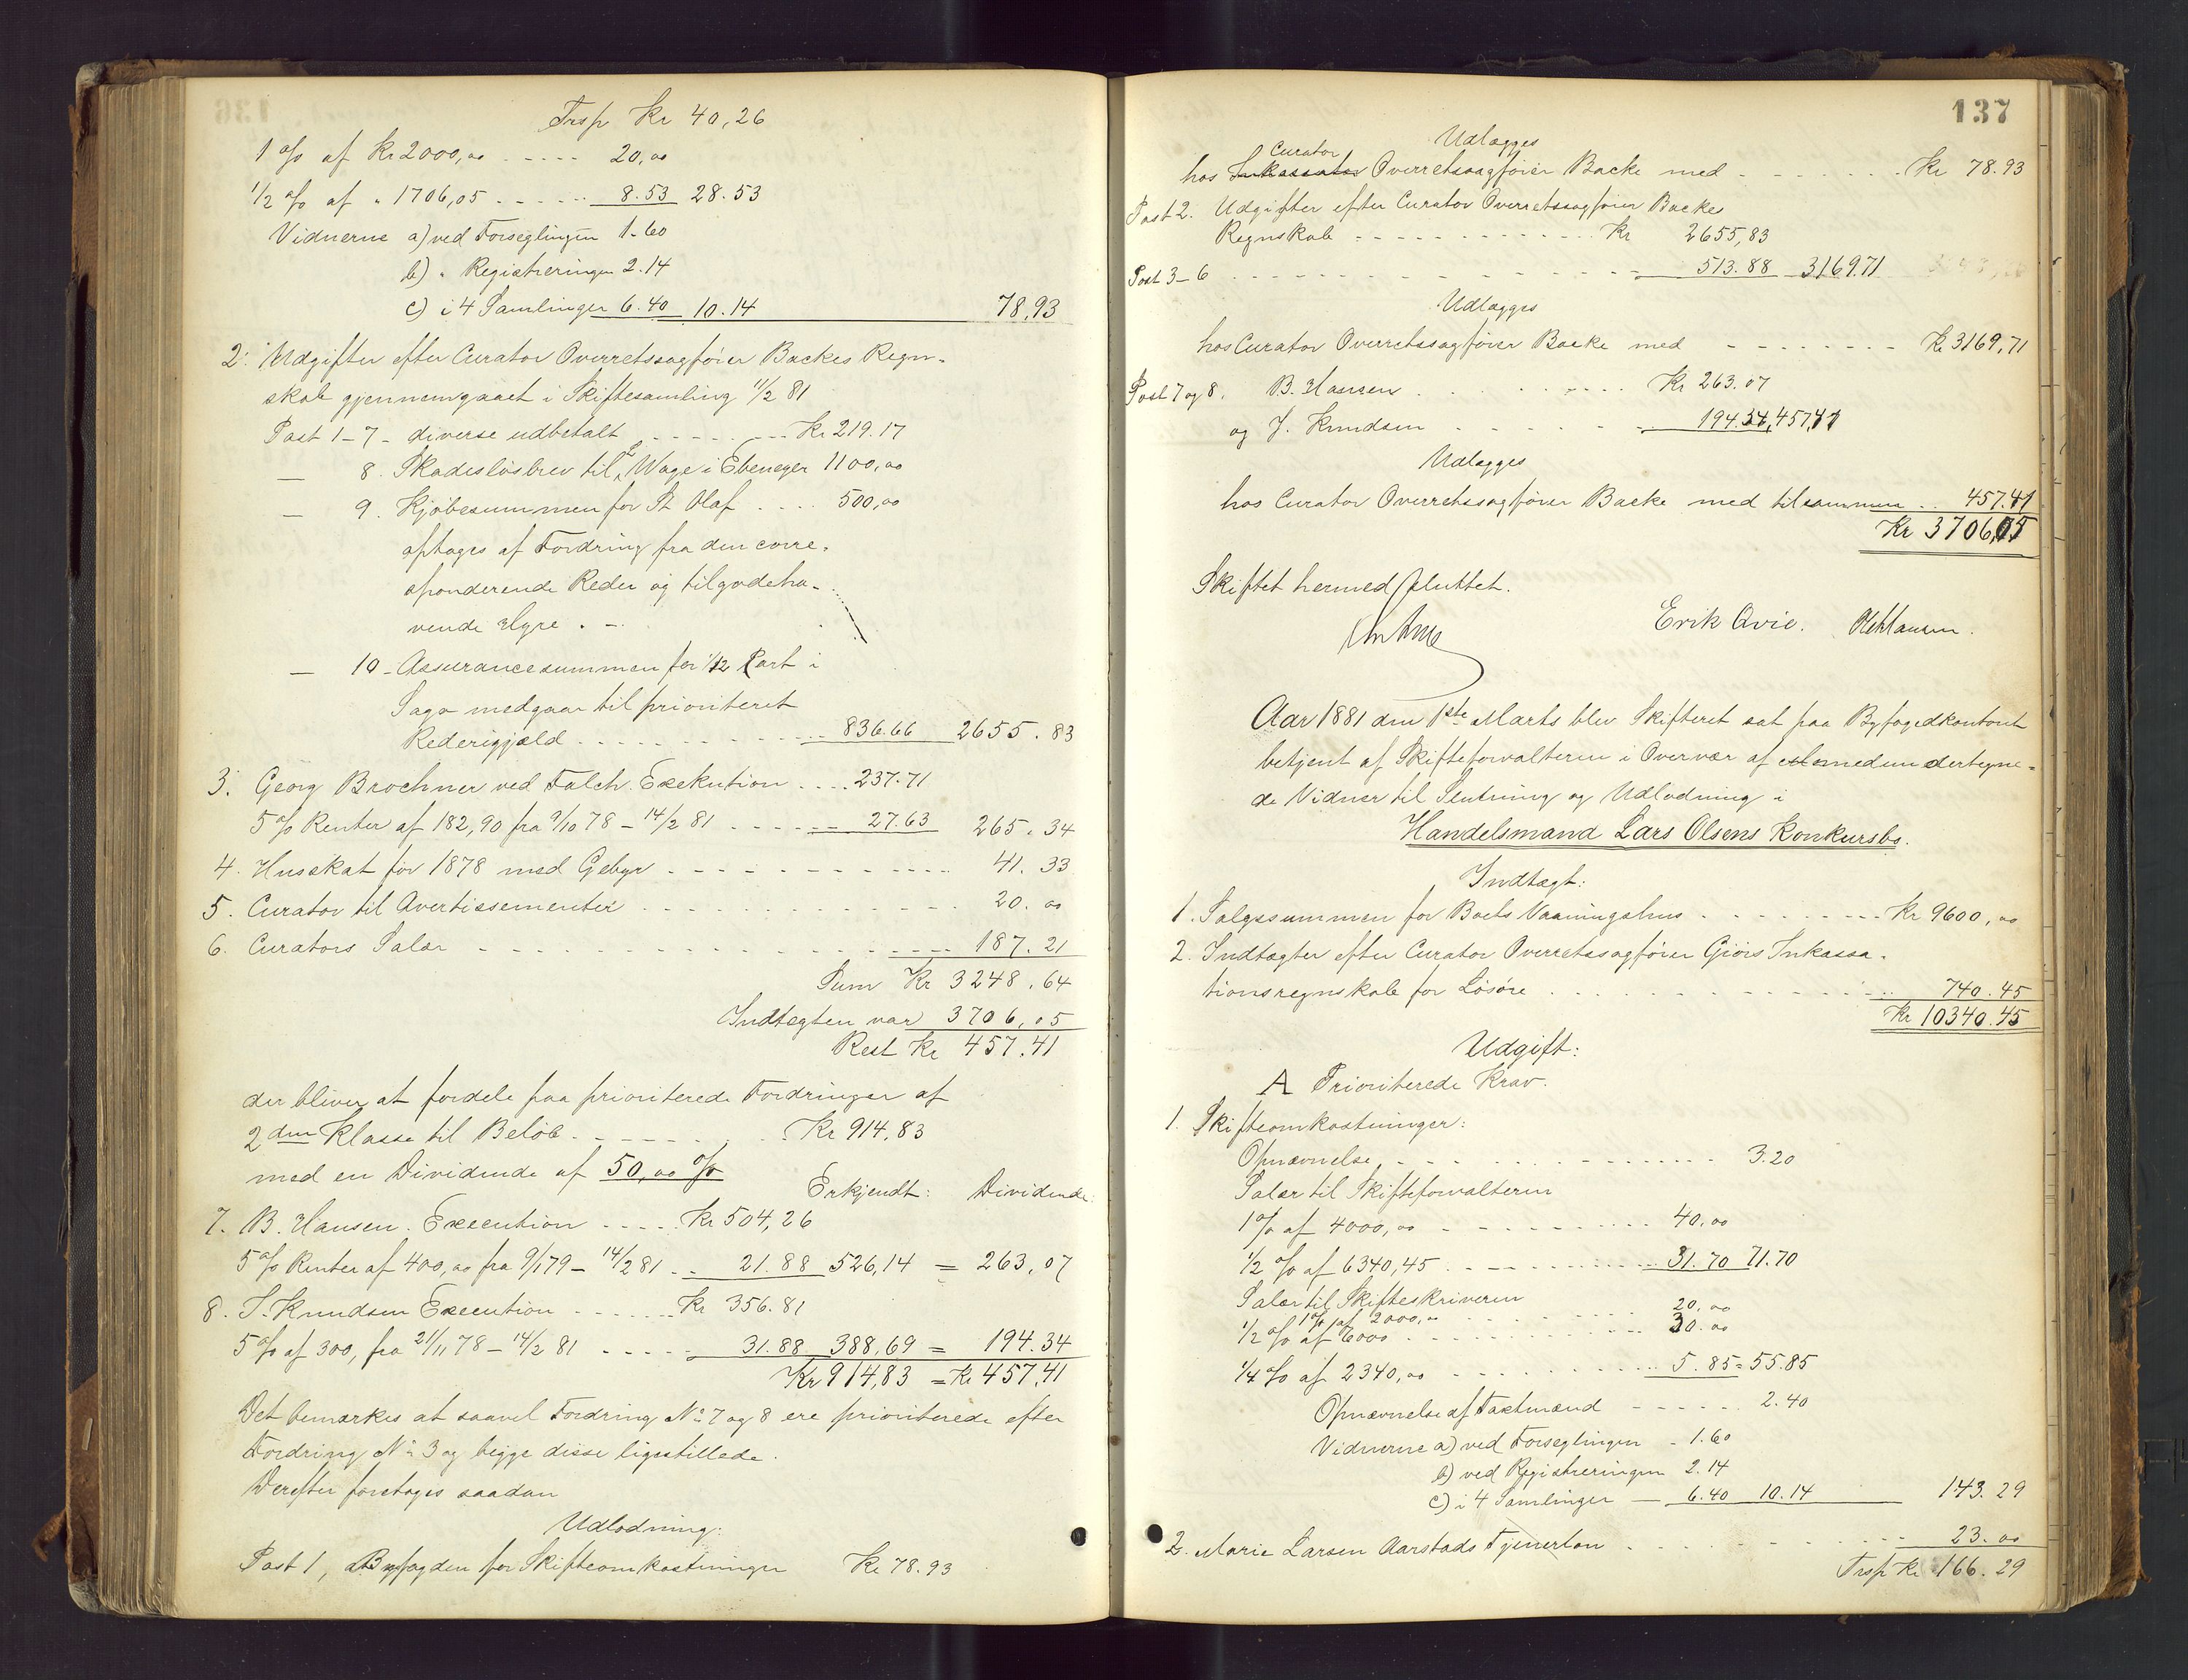 Trsp Kr 40,26
1 % af Kr 2000,00 - - - - - 20,00
1/2 % af " 1706,05 - - - - - 8.53 28.53
Vidnerne a) ved Forseglingen 1.60
b) " Registreringen 2.14
c) i 4 Samlinger 6.40 10.14 78,93
2. Udgifter efter Curator Overretssagfører Backes Regn-
skab gjennemgaaet i Skiftesamling 11/2 81
Post 1-7 - diverse udbetalt - - - - - Kr 219.17
— 8. Skadesløsbrev til Wage i Ebenezer 1100,00
— 9. Kjøbesummen for St Olaf . . . . 500,00
optages af Fordring fra den corre-
sponderende Reder og tilgodeha-
vende Hyre . -
— 10 - Assurancesummen for 1/12 Part i
Saga medgaar til prioriteret
Rederigjæld - - - - - 836.66 2655.83
3. Georg Brochner ved Falch. Exekution . . . . 237.71
5 % Renter af 182,90 fra 9/10 78 - 14/2 81 - - - - - 27.63 265.34
4. Husskat for 1878 med Gebyr - - - - - 41.33
5. Curator til Avertissementer - - - - - 20.00
6. Curators Salær - - - - - 187.21
Sum Kr 3248.64
Indtægten var 3706,05
Rest Kr 457.41
der bliver at fordele paa prioriterede Fordringer af
2den Klasse til Beløb - - - - - Kr 914,83
med en Dividende af 50,00 %
Erkjendt: Dividende:
7. B. Hansen. Execution - - - - Kr 504,26
5 % Renter af 400,00 fra 9/1 79 - 14/2 81 . . 21.88 526,14 = 263,07
8. J. Knudsen Execution - - - - - Kr 356.81
5 % af 300, fra 21/11 78 - 14/2 81 - - - - - 31.88 388,69 = 194.34
Kr 914,83 = Kr 457,41
Det bemærkes at saavel Fordring No 7 og 8 ere prioriterede efter
Fordring No 3 og begge disse ligestillede.
Derefter foretoges saadan
Udlodning:
Post 1, a Byfogden for Skifteomkostninger Kr 78.93
137
Udlægges
Curator
hos Inkassator Overretssagfører Backe med - - - - - Kr 78.93
Post 2. Udgifter efter Curator Overretssagfører Backes
Regnskab - - - - - Kr 2655,83
Post 3-6 - - - - - 513.88 3169.71
Udlægges
hos Curator Overretssagfører Backe med - - - - - Kr 3169,71
Post 7 og 8. B. Hansen . . . . . Kr 263.07
og J. Knudsen - - - - - 194.34, 457,41
Udlægges
hos Curator Overretssagfører Backe med tilsammen . . 457.41
Kr 3706,05
Skiftet hermed sluttet.
Erik Qvie. Hansen.
Aar 1881 den 1ste Marts blev Skifteret sat paa Byfogedkontoret
betjent af Skifteforvalteren i Overvær af medundertegne-
de Vidner til Slutning og Udlodning i
Handelsmand Lars Olsens Konkursbo.
Indtægt:
1. Salgssummen for Boets Vaaningshus - - - - - Kr 9600,00
2. Indtægter efter Curator Overretssagfører Giørs Inkassa-
tionsregnskab for Løsøre . . . . . 740.45
Kr 10340.45
Udgift:
A Prioriterede Krav.
1. Skifteomkostninger:
Opnævnelse - - - - - 3.20
Salær til Skifteforvalteren
1 % af 4000,00 - - - - - 40,00
1/2 % af 6340,45 - - - - - 31.70 71.70
Salær til Skifteskriveren
1 % af 2000,00 - - - - - 20,00
1/2 % af 6000 - - - - - 30.00
1/4 % af 2340,00 - - - - - 5.85 = 55.85
Opnævnelse af Taxtmænd - - - - - 2.40
Vidnerne a) ved Forseglingen - 1.60
b) ved Registreringen 2.14
c) i 4 Samlinger — 6.40 10.14 143.29
2. Marie Larsen Aarstads Tjenerløn - - - - - 23.00
Trsp Kr 166.29